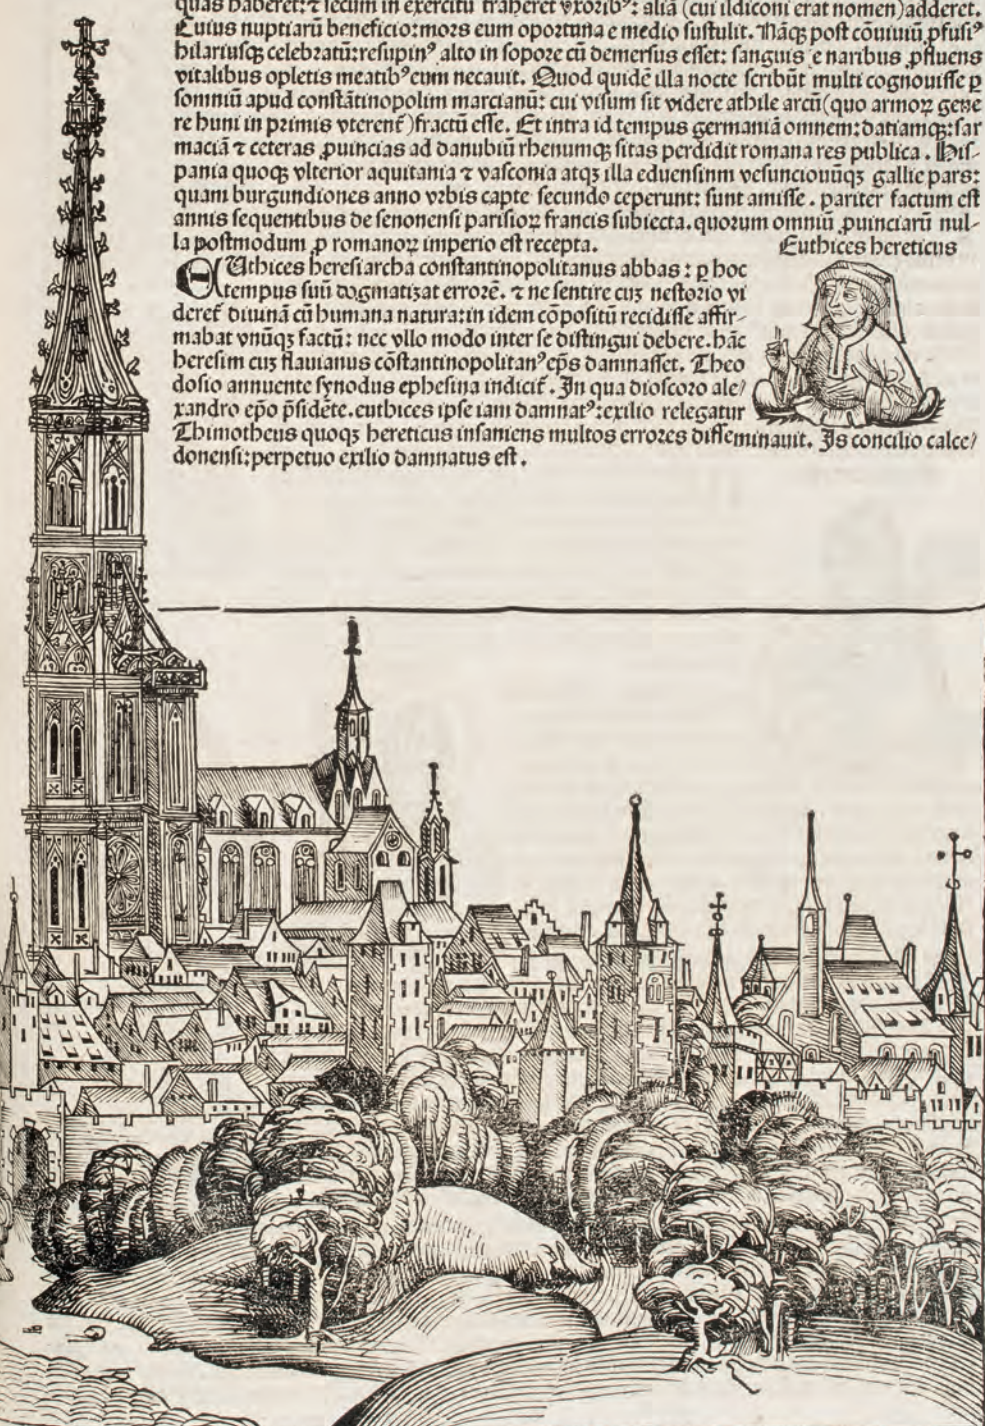 quas haberet: ⁊ secum in exercitu traheret vxoribꝰ: aliā (cui ildiconi erat nomen) adderet.
Cuius nuptiarū beneficio: mors eum oportuna e medio sustulit. Nāqꝫ post cōuiuiū ꝓfusiꝰ
hilariusqꝫ celebratū: resupinꝰ alto in sopore cū demersus esset: sanguis e naribus ꝓfluens
vitalibus opletis meatibꝰ eum necauit. Quod quidē illa nocte scribūt multi cognouisse ꝑ
somniū apud constātinopolim marcianū: cui visum sit videre athile arcū (quo armoꝝ gene
re huni in primis vterent᷑) fractū esse. Et intra id tempus germaniā omnem: datiamqꝫ: sar
maciā ⁊ ceteras ꝓuincias ad danubiū rhenumqꝫ sitas perdidit romana res publica. His-
pania quoqꝫ vlterior aquitania ⁊ vasconia atqꝫ illa eduensium vesunciouūqꝫ gallie pars:
quam burgundiones anno vrbis capte secundo ceperunt: sunt amisse. pariter factum est
annis sequentibus de senonensi parisioꝝ francis subiecta. quorum omniū ꝓuinciarū nul-
la postmodum ꝓ romanoꝝ imperio est recepta.
Euthices hereticus
EUthices heresiarcha constantinopolitanus abbas: ꝑ hoc
tempus suū dogmatizat errorē. ⁊ ne sentire cuꝫ nestorio vi
deret᷑ diuinā cū humana natura: in idem cōpositū recidisse affir-
mabat vnūqꝫ factū: nec vllo modo inter se distingui debere. hāc
heresim cuꝫ flauianus cōstantinopolitanꝰ ep̄s damnasset. Theo
dosio annuente synodus ephesina indicit᷑. In qua dioscoro ale/
xandro ep̄o p̄sidēte. euthices ipse iam damnatꝰ: exilio relegatur
Thimotheus quoqꝫ hereticus insaniens multos errores disseminauit. Is concilio calce/
donensi: perpetuo exilio damnatus est.